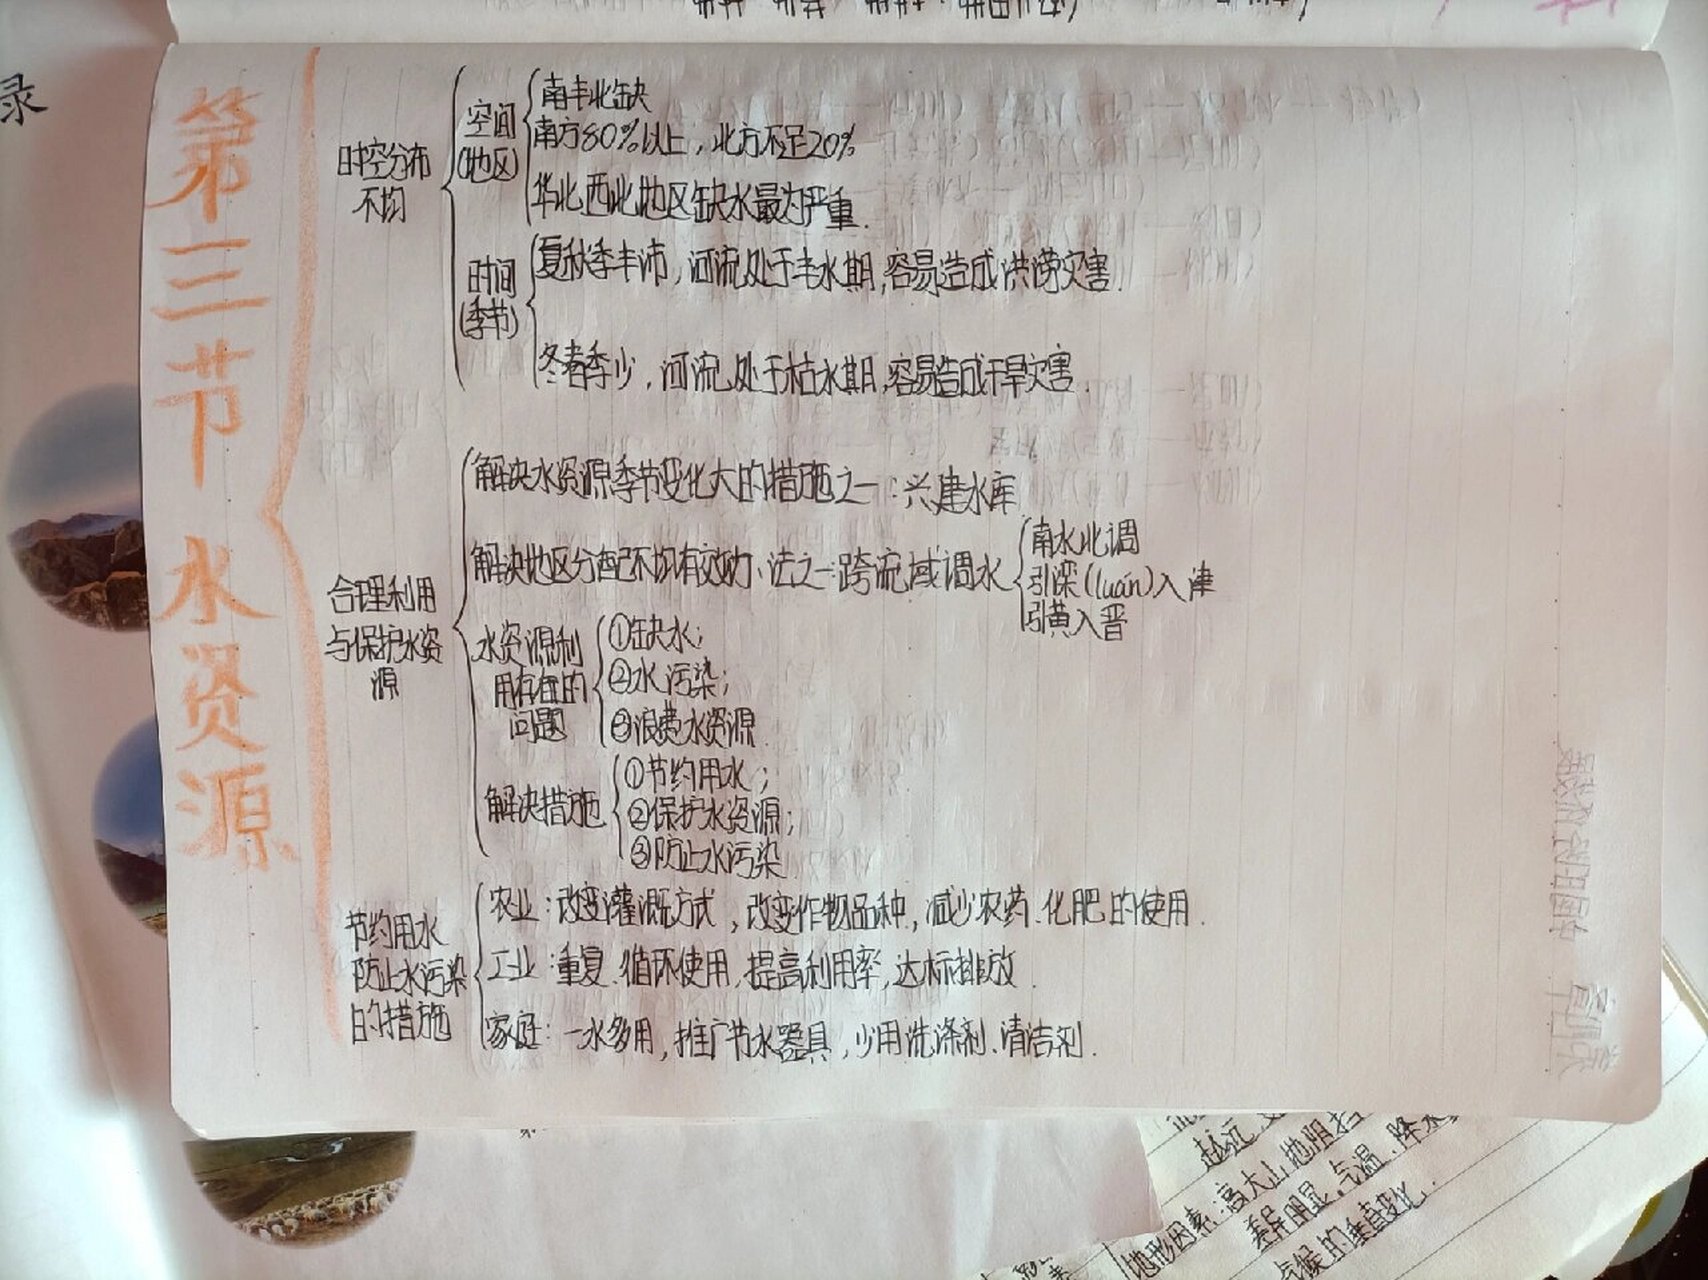 录
第三节 水资源
时空分布
不均
空间
(地区)
南丰北缺
南方80%以上，北方不足20%
华北、西北地区缺水最为严重.
时间
(季节)
夏秋季丰沛，河流处于丰水期,容易造成洪涝灾害.
冬春季少，河流处于枯水期,容易造成干旱灾害.
合理利用
与保护水资
源
解决水资源季节变化大的措施之一：兴建水库
解决地区分配不均有效办法之一:跨流域调水
南水北调
引滦(luán)入津
引黄入晋
水资源利
用存在的
问题
①缺水;
②水污染;
③浪费水资源
解决措施
①节约用水;
②保护水资源;
③防止水污染
节约用水
防止水污染
的措施
农业:改变灌溉方式,改变作物品种,减少农药、化肥的使用.
工业:重复、循环使用,提高利用率,达标排放.
家庭:一水多用,推广节水器具,少用洗涤剂、清洁剂.
越远
地形因素:高大山地阴挡
差异明显.气温.降水
气候的垂直变化.